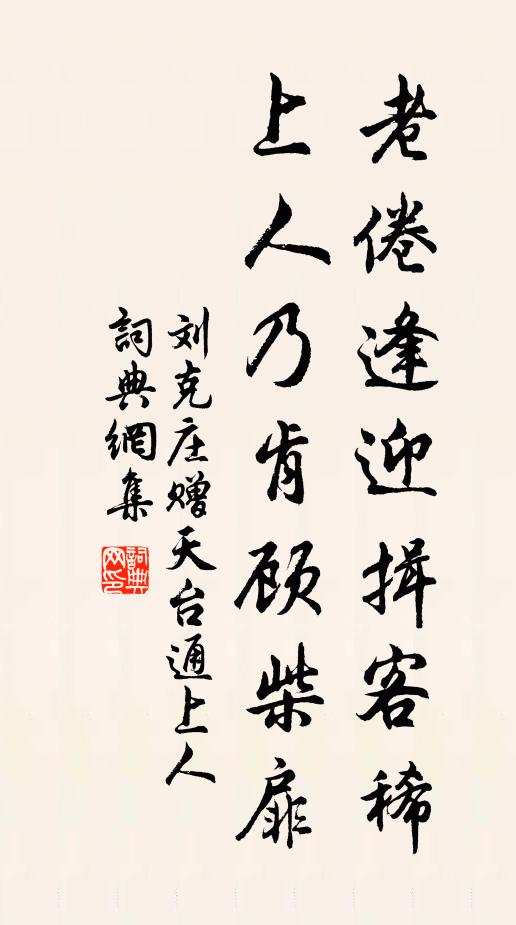 老倦逢迎揖客稀
上人乃肯顾柴扉
刘克庄赠天台通上人
詞典網集
詞典
网印